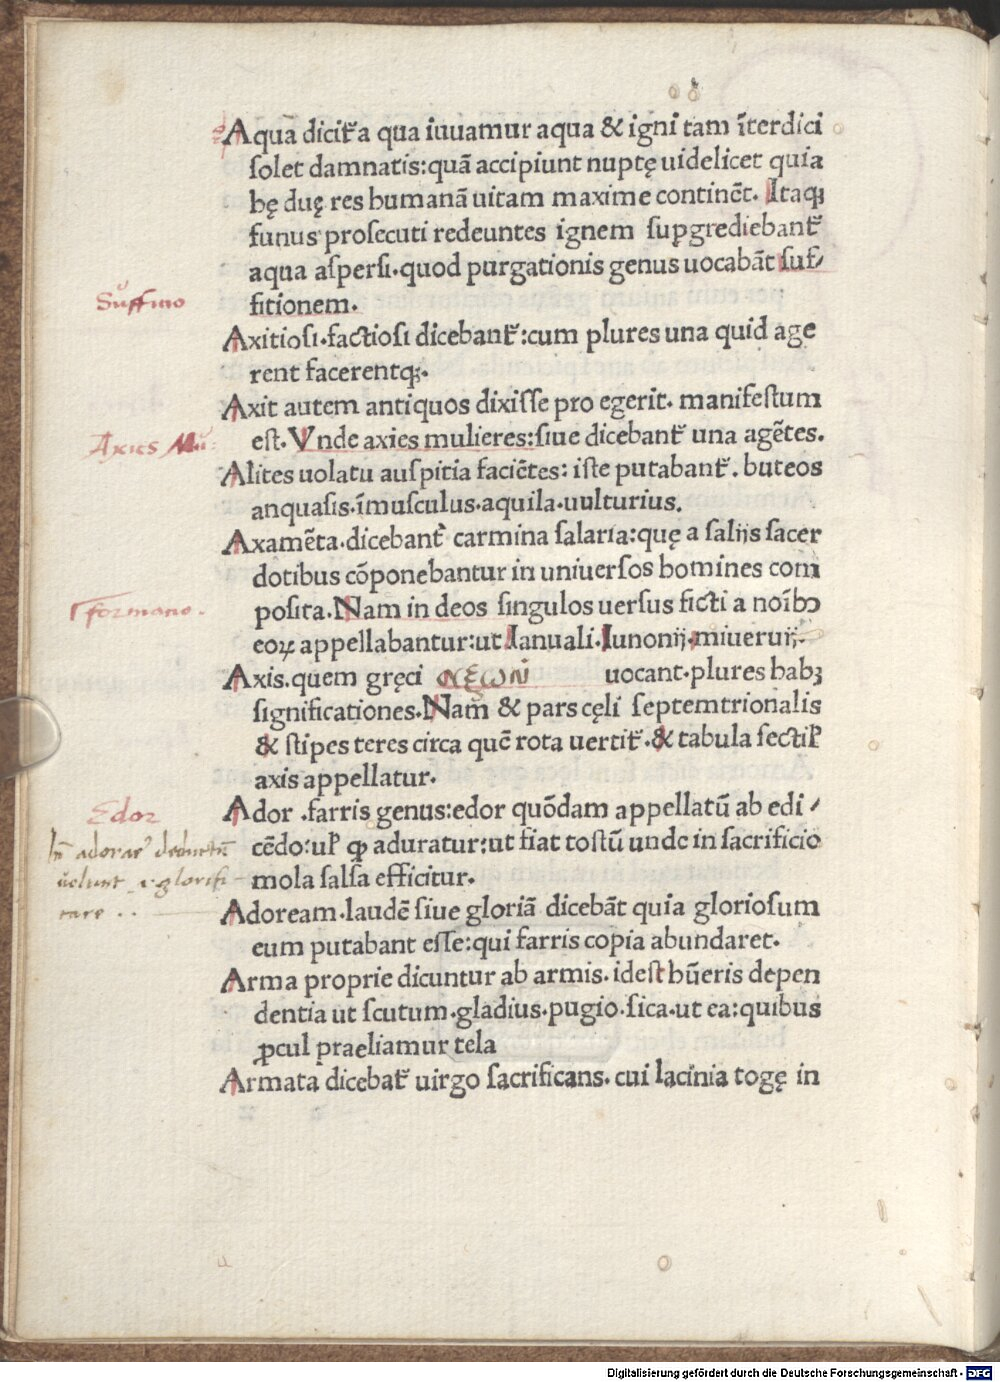 Aqua dicit᷑ a qua iuuamur aqua & igni tam īterdici
ſolet damnatis:quā accipiunt nuptę uidelicet quia
hę duę res humanā uitam maxime continēt. Itaqꝫ
funus proſecuti redeuntes ignem ſuꝑgrediebant᷑
aqua aſperſi.quod purgationis genus uocabāt ſuf⸗
Suffitio
fitionem.
Axitioſi.factioſi dicebant᷑:cum plures una quid age
rent facerentqꝫ.
Axit autem antiquos dixiſſe pro egerit. manifeſtum
Axies Mu:
eſt. Vnde axies mulieres:ſiue dicebant᷑ una agētes.
Alites uolatu auſpitia faciētes: iſte putabant᷑. buteos
anquaſis.īmuſculus.aquila.uulturius.
Axamēta.dicebant᷑ carmina ſalaria:quę a ſaliis ſacer
dotibus cōponebantur in uniuerſos homines com
poſita. Nam in deos ſingulos uerſus ficti a noībꝰ
eoꝝ appellabantur:ut Ianuali.Iunonij.miueruij.
Axis.quem gręci αξων uocant.plures habꝫ
ſignificationes.Nam & pars cęli ſeptemtrionalis
& ſtipes teres circa quē rota uertit᷑.& tabula ſectil̛
axis appellatur.
Edor
Ador .farris genus:edor quōdam appellatū ab edi⸗
cēdo:ul̛ ꝙ aduratur:ut fiat toſtū unde in ſacrificio
mola ſalſa efficitur.
adorae deductū
uolunt .i. glorifi
care ..
Adoream.laudē ſiue gloriā dicebāt quia glorioſum
eum putabant eſſe:qui farris copia abundaret.
Arma proprie dicuntur ab armis.ideſt hūeris depen
dentia ut ſcutum.gladius.pugio.ſica.ut ea:quibus
ꝓcul praeliamur tela
Armata dicebat᷑ uirgo ſacrificans.cui lacinia togę in
Digitalisierung gefördert durch die Deutsche Forschungsgemeinschaft - DFG